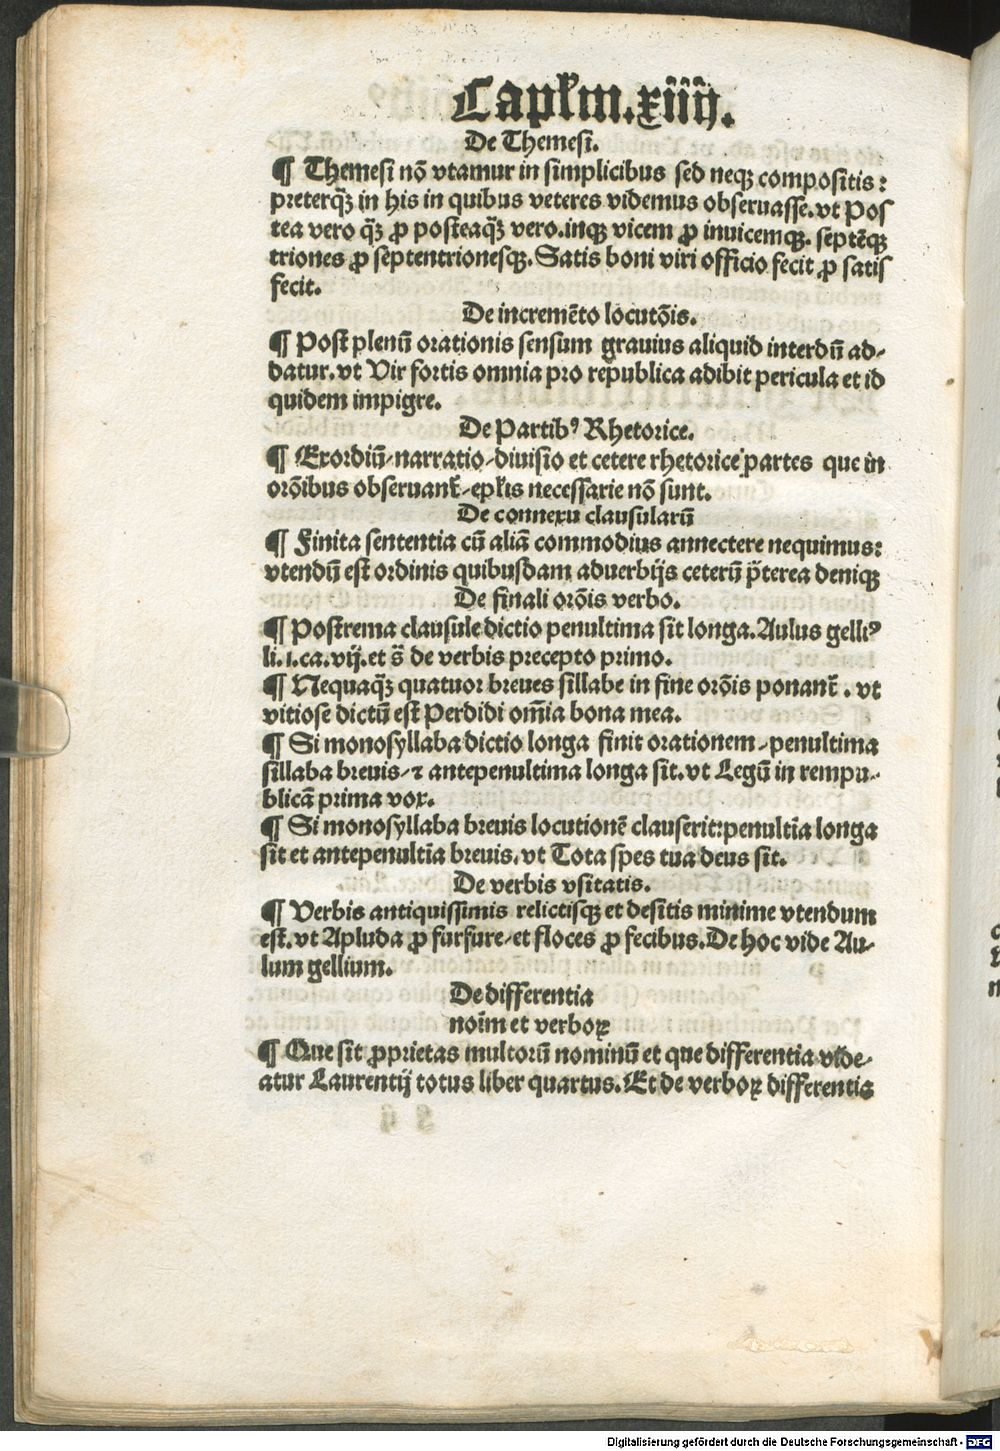 Capłm.xiiij.
De Themesi.
¶ Themesi nō vtamur in simplicibus sed neqꝫ compositis:
preterqꝫ̄ in his in quibus veteres videmus obseruasse.vt Pos
tea vero qꝫ̄ ꝓ posteaqꝫ̄ vero.inqꝫ vicem ꝓ inuicemqꝫ. septēqꝫ
triones ꝓ septentrionesqꝫ. Satis boni viri officio fecit ꝓ satis
fecit.
De incremēto locutōis.
¶ Post plenū orationis sensum grauius aliquid interdū ad-
datur.vt Vir fortis omnia pro republica adibit pericula et id
quidem impigre.
De Partibꝰ Rhetorice.
¶ Exordiū/narratio/diuisio et cetere rhetorice partes que in
orōibus obseruant᷑/epłis necessarie nō sunt.
De connexu clausularū
¶ Finita sententia cū aliā commodius annectere nequimus:
vtendū est ordinis quibusdam aduerbijs ceterū p̄terea deniqꝫ
De finali orōis verbo.
¶ Postrema clausule dictio penultima sit longa. Aulus gelliꝰ
li.i.ca.vij.et s̄ de verbis precepto primo.
¶ Nequaqꝫ̄ quatuor breues sillabe in fine orōis ponant᷑ . vt
vitiose dictū est Perdidi om̄ia bona mea.
¶ Si monosyllaba dictio longa finit orationem/penultima
sillaba breuis/⁊ antepenultima longa sit.vt Legū in rempu-
blicā prima vox.
¶ Si monosyllaba breuis locutionē clauserit:penultīa longa
sit et antepenultīa breuis.vt Tota spes tua deus sit.
De verbis vsitatis.
¶ Verbis antiquissimis relictisqꝫ et desitis minime vtendum
est.vt Apluda ꝓ furfure/et floces ꝓ fecibus. De hoc vide Au-
lum gellium.
De differentia
noīm et verboꝝ
¶ Que sit ꝓprietas multorū nominū et que differentia vide-
atur Laurentij totus liber quartus. Et de verboꝝ differentia
Digitalisierung gefördert durch die Deutsche Forschungsgemeinschaft - DFG